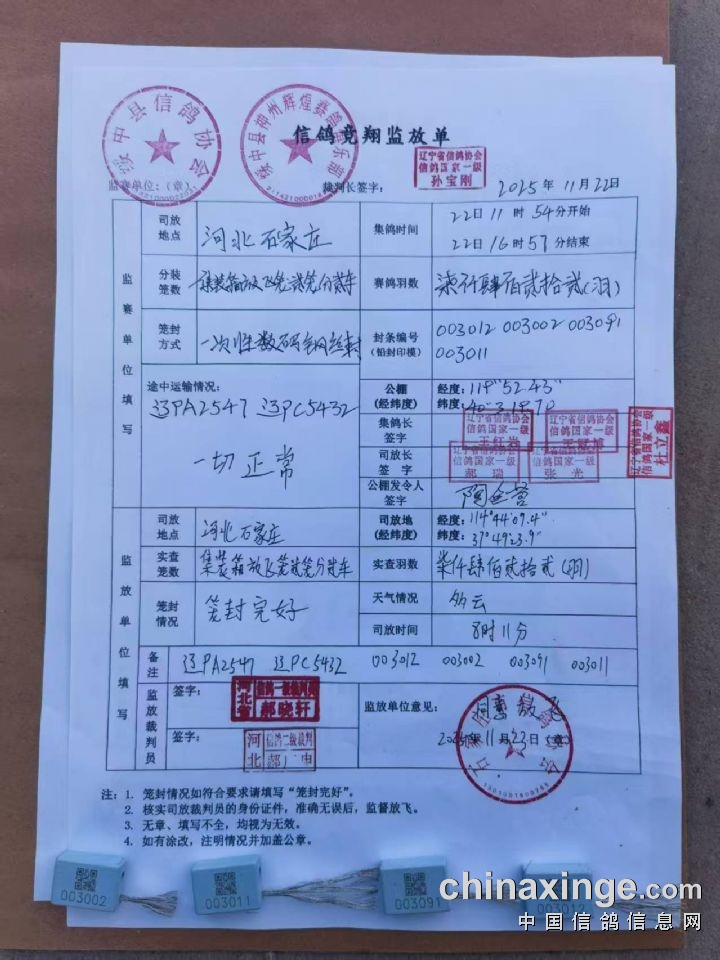 绥中县信鸽协会
绥中县神州辉煌赛鸽俱乐部
信鸽竞翔监放单
辽宁省信鸽协会
信鸽国家一级
孙宝刚
监赛单位:(章)
裁判长签字:
2025年11月22日
监赛单位填写
司放地点
河北石家庄
集鸽时间
22日11时54分开始
22日16时57分结束
分装笼数
集装箱放飞笼贰笼分贰车
赛鸽羽数
柒仟肆佰贰拾贰(羽)
笼封方式
一次性数码钢丝封
封条编号
(铅封印模)
003012 003002 003091
003011
途中运输情况:
辽PA2547 辽PC5432
一切正常
公棚
(经纬度)
经度:119°52.43"
纬度:
集鸽长签字
辽宁省信鸽协会
信鸽国家一级
王红岩
辽宁省信鸽协会
信鸽国家一级
辽宁省信鸽协会
信鸽国家一级
杜立鑫
司放长签字
辽宁省信鸽协会
信鸽国家一级
郝瑞
辽宁省信鸽协会
信鸽国家一级
张光
公棚发令人签字
监放单位填写
司放地点
河北石家庄
司放地
(经纬度)
经度:114°44'09.4"
纬度:37°49'23.9"
实查笼数
集装箱放飞笼贰笼分贰车
实查羽数
柒仟肆佰贰拾贰(羽)
笼封情况
笼封完好
天气情况
多云
司放时间
8时11分
备注
辽PA2547 辽PC5432 003012 003002 003091 003011
监放裁判员
签字:
河北省
信鸽一级裁判员
郝晓轩
签字:
河北
信鸽二级裁判
监放单位意见:
同意放飞
11月23日(章)
石家庄市信鸽协会
注:1. 笼封情况如符合要求请填写“笼封完好”。
2. 核实司放裁判员的身份证件,准确无误后,监督放飞。
3. 无章、填写不全,均视为无效。
4. 如有涂改,注明情况并加盖公章。
003002
003011
003091
003012
chinaxinge.com
中国信鸽信息网